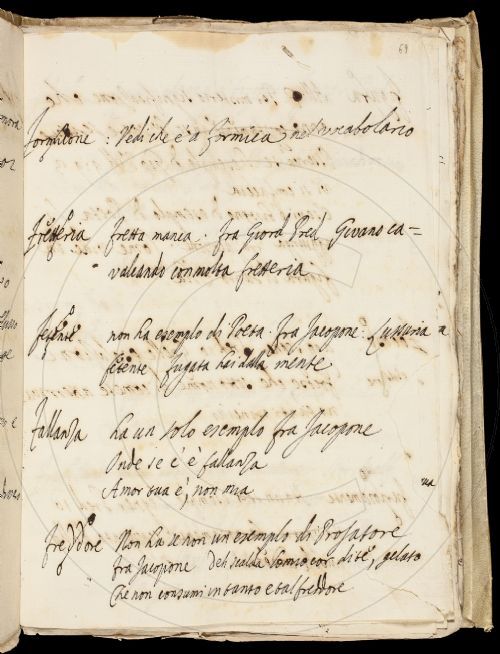 69
Formicone : Vedi che è a formica nel Vocabolario
Fretteria fretta manca . fra Giord. Pred. Givano ca=
valcando con molta fretteria
Fetente non ha esemplo di Poeta. fra Jacopone. Lussuria
fetente fugata hai dalla mente
Fallanza ha un solo esemplo fra Jacopone
Onde se c'è fallanza
Amor tua è, non mia
freddore Non ha se non un esemplo di Prosatore
fra Jacopone Deh scalda cor di te, gelato
Che non consumi in tanto e tal freddore